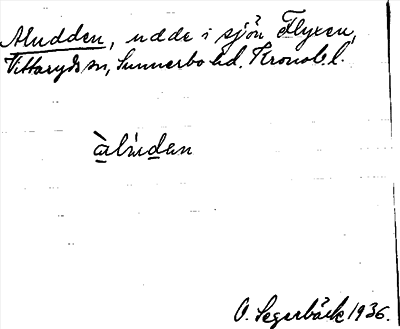 Aludden, udde i sjön Flyxen,
Vittaryds sn, Sunnerbo hd. Kronob. l.
àlúdan
O. Segerbäck 1936.